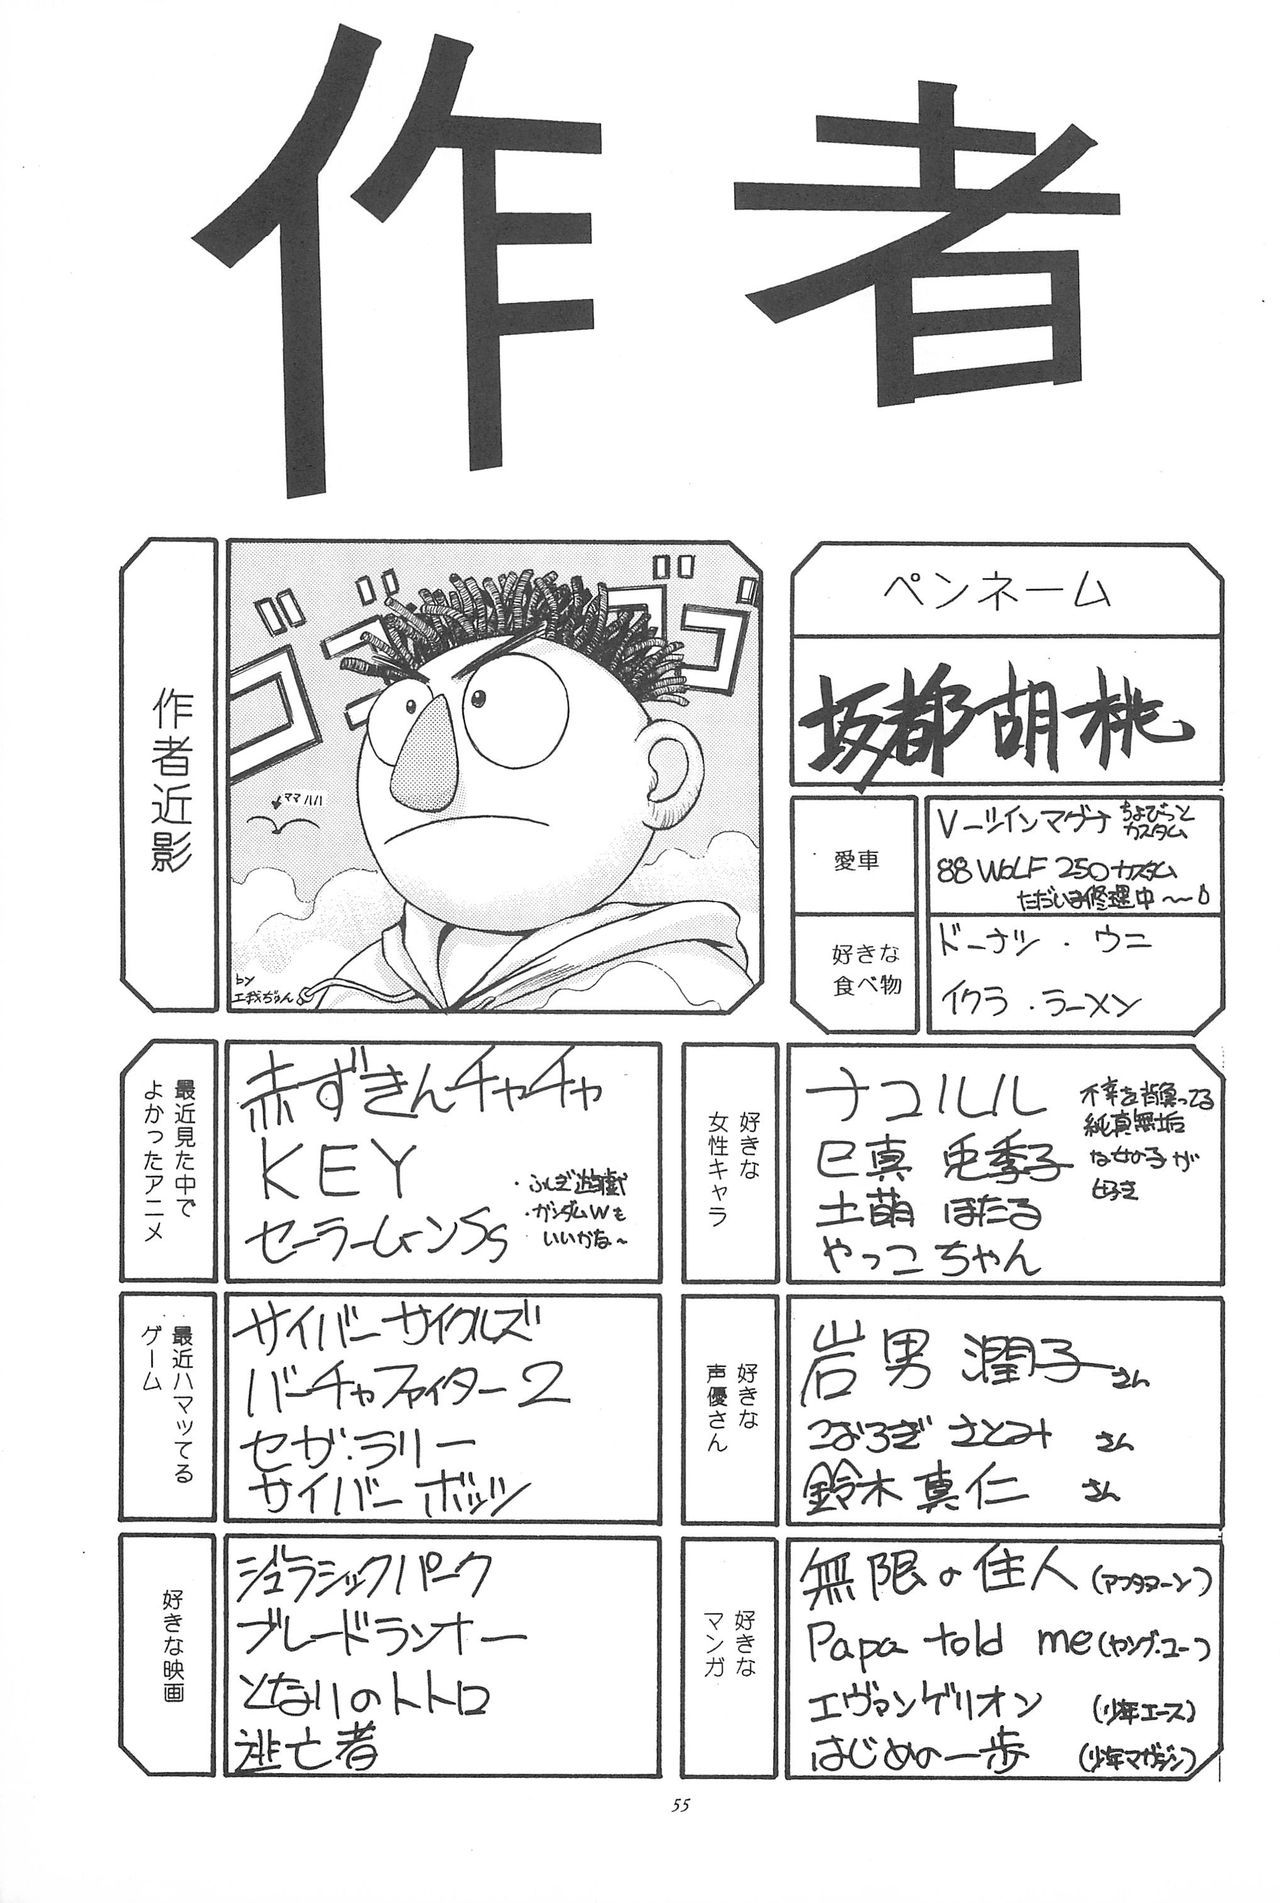 作者
作者近影
ゴゴゴゴ
ママハハ
by
工我ぢゅん
ペンネーム
坂都胡桃
愛車
Vーツインマグナ ちょびっと
カスタム
88 WOLF 250 カスタム
ただいま修理中～
好きな
食べ物
ドーナツ・ウニ
イクラ・ラーメン
最近見た中で
よかったアニメ
赤ずきんチャチャ
KEY
セーラームーンSS
・ふしぎ遊戯
・ガンダムWも
いいかな～
好きな
女性キャラ
ナコルル
巳真 兎季子
土萌 ほたる
やっこちゃん
不幸を背負ってる
純真無垢
な女の子が
好き
最近ハマッてる
ゲーム
サイバーサイクルズ
バーチャファイター2
セガ・ラリー
サイバーボッツ
好きな
声優さん
岩男 潤子さん
こおろぎ さとみ さん
鈴木 真仁 さん
好きな映画
ジュラシックパーク
ブレードランナー
となりのトトロ
逃亡者
好きな
マンガ
無限の住人(アフタヌーン)
Papa told me(ヤング・ユー)
エヴァンゲリオン (少年エース)
はじめの一歩 (少年マガジン)
55